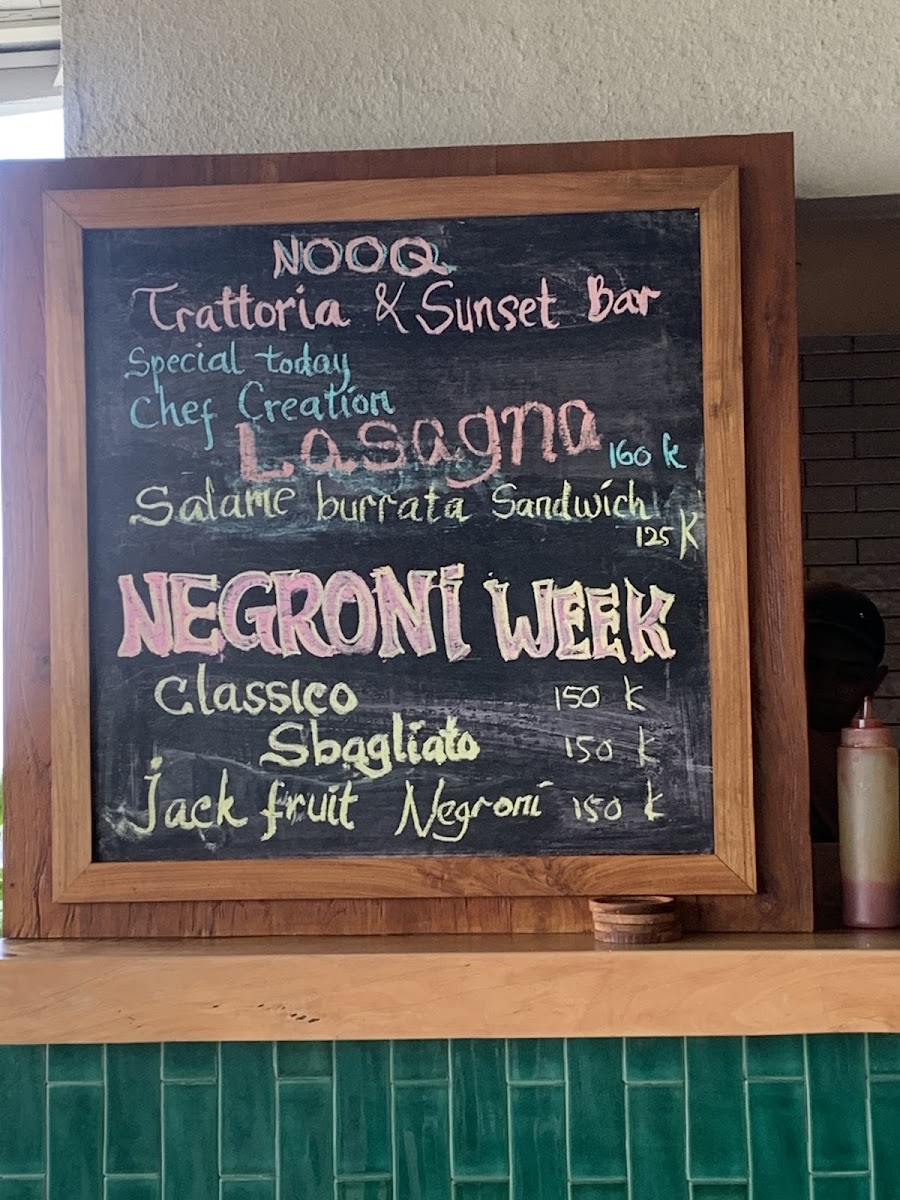 NOOQ
Trattoria & Sunset Bar
Special today
Chef Creation
Lasagna 160 k
Salame burrata Sandwich
125 K
NEGRONi WEEK
Classico 150 k
Sbagliato 150 k
Jack fruit Negroni 150 k